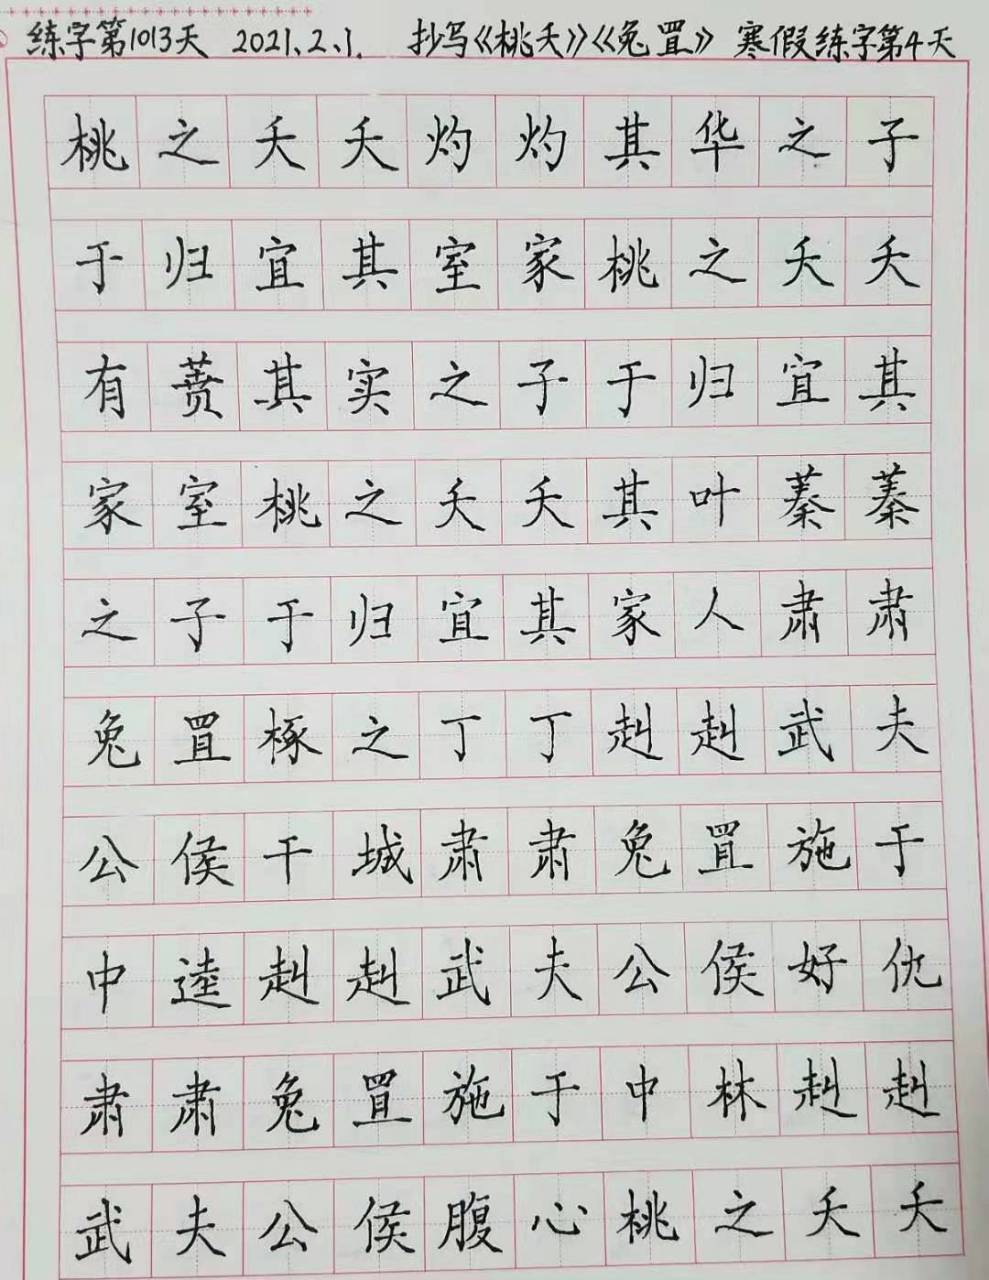 练字第1013天 2021.2.1. 抄写《桃夭》《兔罝》 寒假练字第4天
桃之夭夭灼灼其华之子
于归宜其室家桃之夭夭
有蕡其实之子于归宜其
家室桃之夭夭其叶蓁蓁
之子于归宜其家人肃肃
兔罝椓之丁丁赳赳武夫
公侯干城肃肃兔罝施于
中逵赳赳武夫公侯好仇
肃肃兔罝施于中林赳赳
武夫公侯腹心桃之夭夭